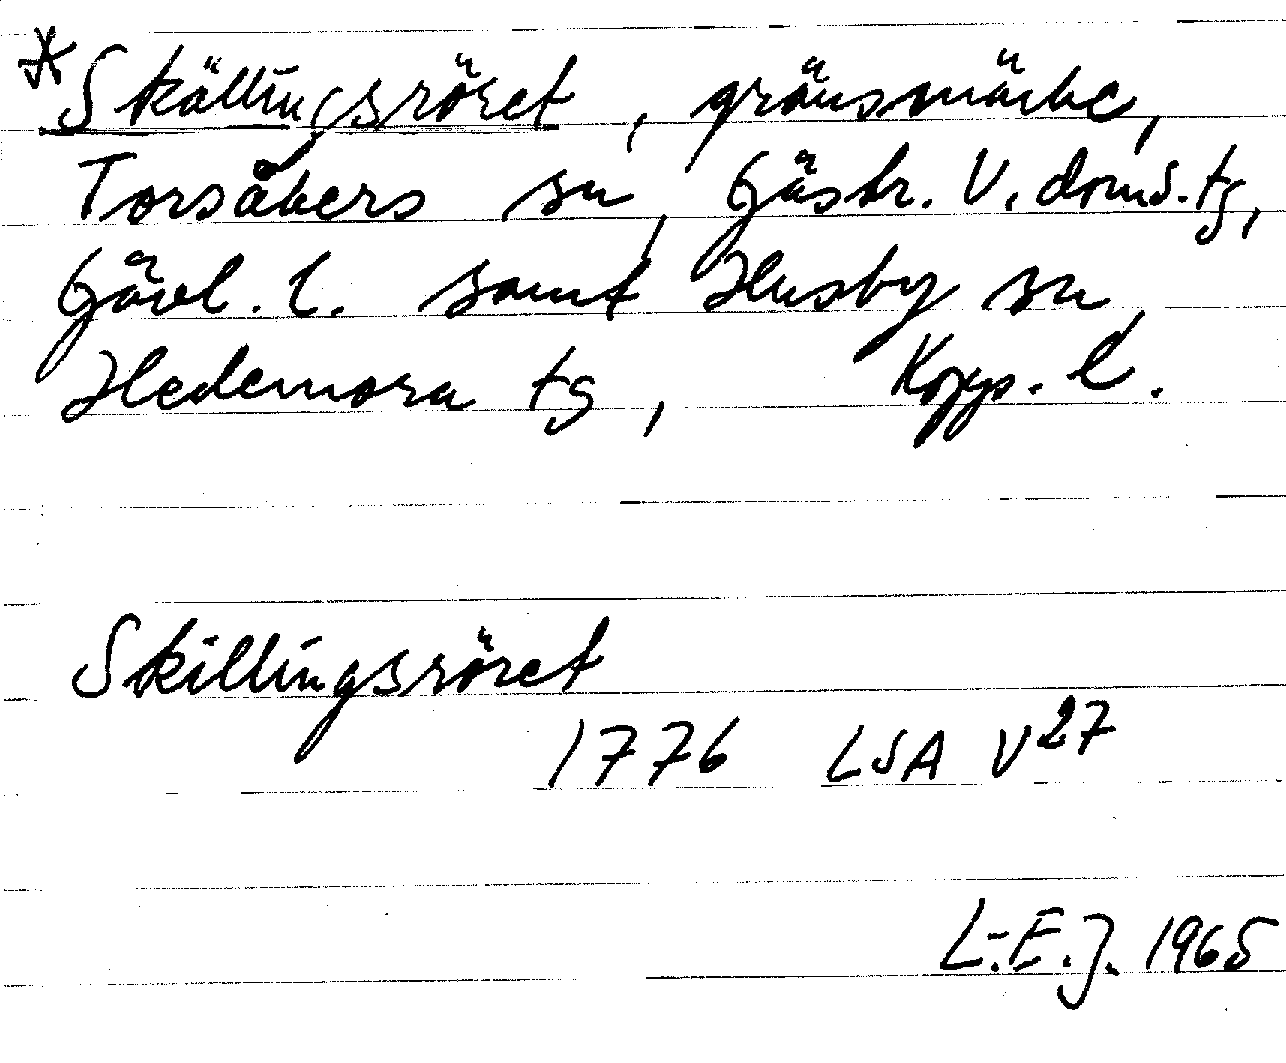 *Skällingsröret, gränsmärke,
Torsåkers sn, Gästr. V. doms. tg,
Gävl. l. samt Husby sn,
Hedemora tg, Kopp. l.
Skillingsröret
1776 LSA V27
L.-E.J. 1965